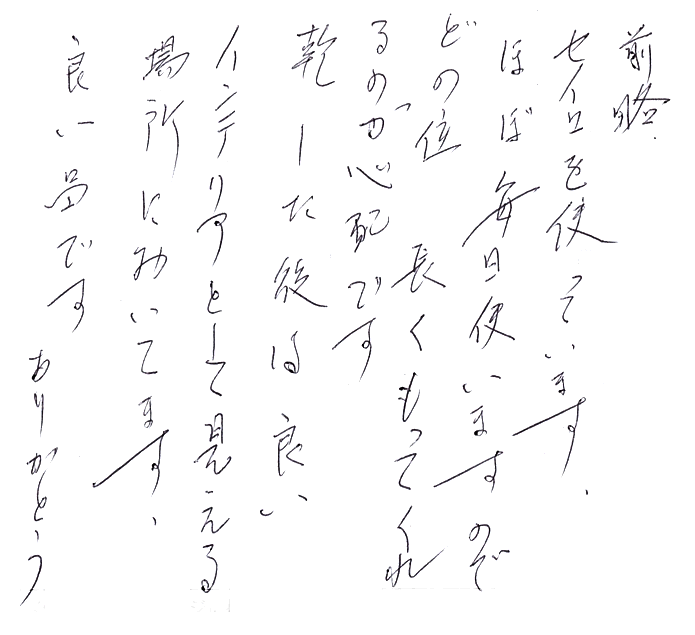 前略.
セイロを使っています.
ほぼ毎日使いますので
どの位 長くもってくれ
るのか心配です
乾した後は良い
インテリアとして見える
場所においてます.
良い品です
ありがとう